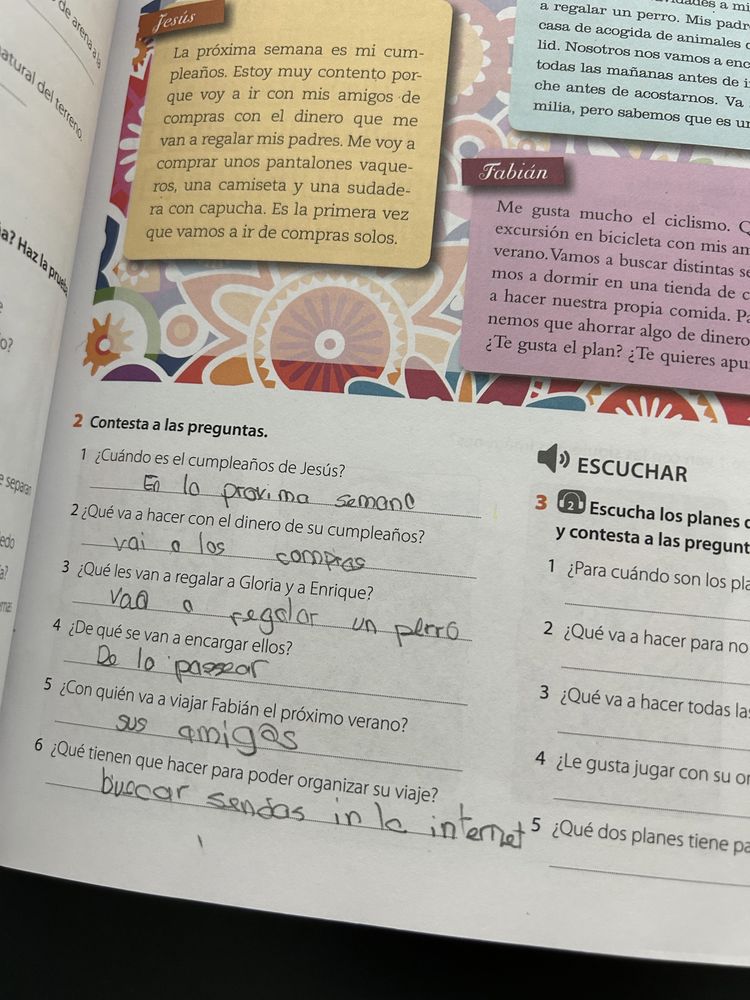 de arena a la
atural del terreno.
a? Haz la prueba
o?
e separan
edo
a?
mas
Jesús
La próxima semana es mi cum-
pleaños. Estoy muy contento por-
que voy a ir con mis amigos de
compras con el dinero que me
van a regalar mis padres. Me voy a
comprar unos pantalones vaque-
ros, una camiseta y una sudade-
ra con capucha. Es la primera vez
que vamos a ir de compras solos.
a regalar un perro. Mis padr
casa de acogida de animales
lid. Nosotros nos vamos a enc
todas las mañanas antes de i
che antes de acostarnos. Va
milia, pero sabemos que es un
Fabián
Me gusta mucho el ciclismo. Q
excursión en bicicleta con mis am
verano. Vamos a buscar distintas se
mos a dormir en una tienda de c
a hacer nuestra propia comida. Pa
nemos que ahorrar algo de dinero
¿Te gusta el plan? ¿Te quieres apu
2 Contesta a las preguntas.
1 ¿Cuándo es el cumpleaños de Jesús?
En la proxima semana
2 ¿Qué va a hacer con el dinero de su cumpleaños?
vai a los compras
3 ¿Qué les van a regalar a Gloria y a Enrique?
a regalar un perro
4 ¿De qué se van a encargar ellos?
De lo passear
5 ¿Con quién va a viajar Fabián el próximo verano?
sus amigos
6 ¿Qué tienen que hacer para poder organizar su viaje?
buscar sendas in la internet
ESCUCHAR
3 2 Escucha los planes d
y contesta a las pregunt
1 ¿Para cuándo son los pla
2 ¿Qué va a hacer para no
3 ¿Qué va a hacer todas la
4 ¿Le gusta jugar con su or
5 ¿Qué dos planes tiene pa